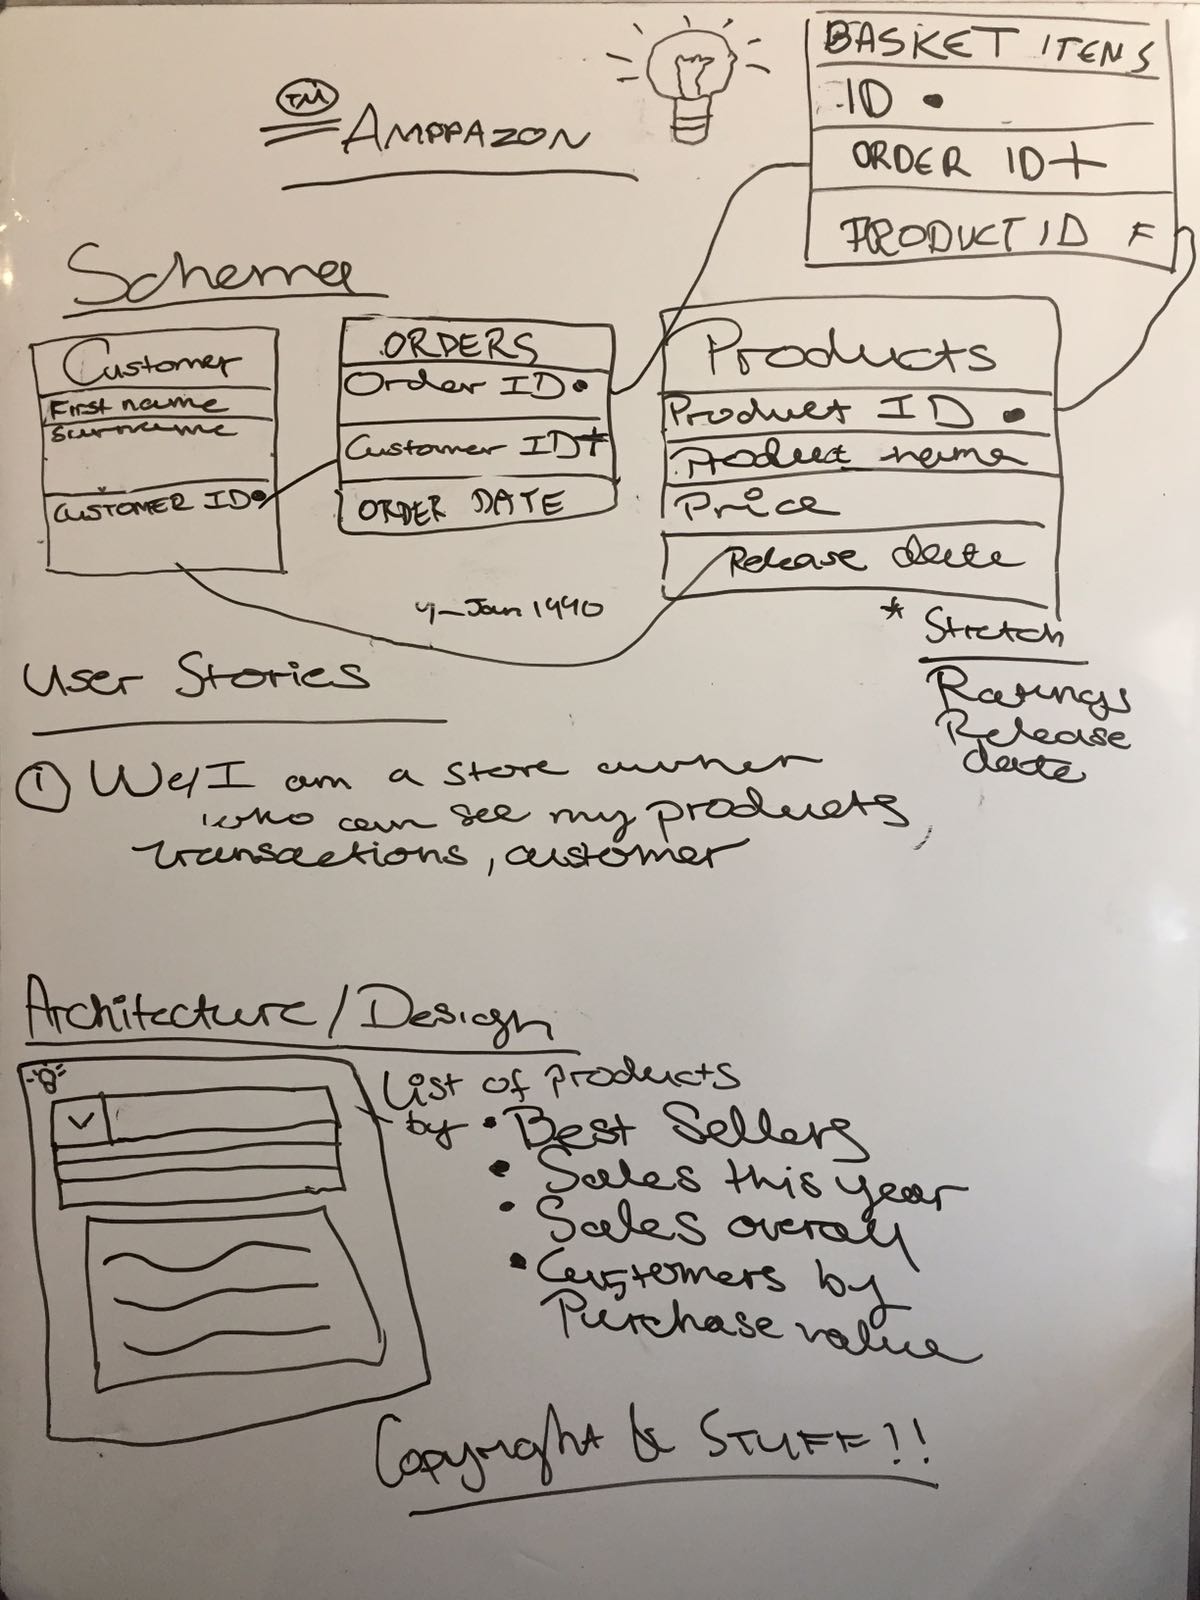 TM
AMPPAZON
BASKET ITENS
ID •
ORDER ID +
PRODUCT ID F
Schema
Customer
First name
Surname
CUSTOMER ID •
ORDERS
Order ID •
Customer ID +
ORDER DATE
Products
Product ID •
Product name
Price
Release date
Jan 1990
* Stretch
Ratings
Release
date
User Stories
① We/I am a store owner
who can see my products,
transactions, customer
Architecture/Design
List of products
by • Best Sellers
• Sales this year
• Sales overall
• Customers by
Purchase value
Copyright & STUFF!!